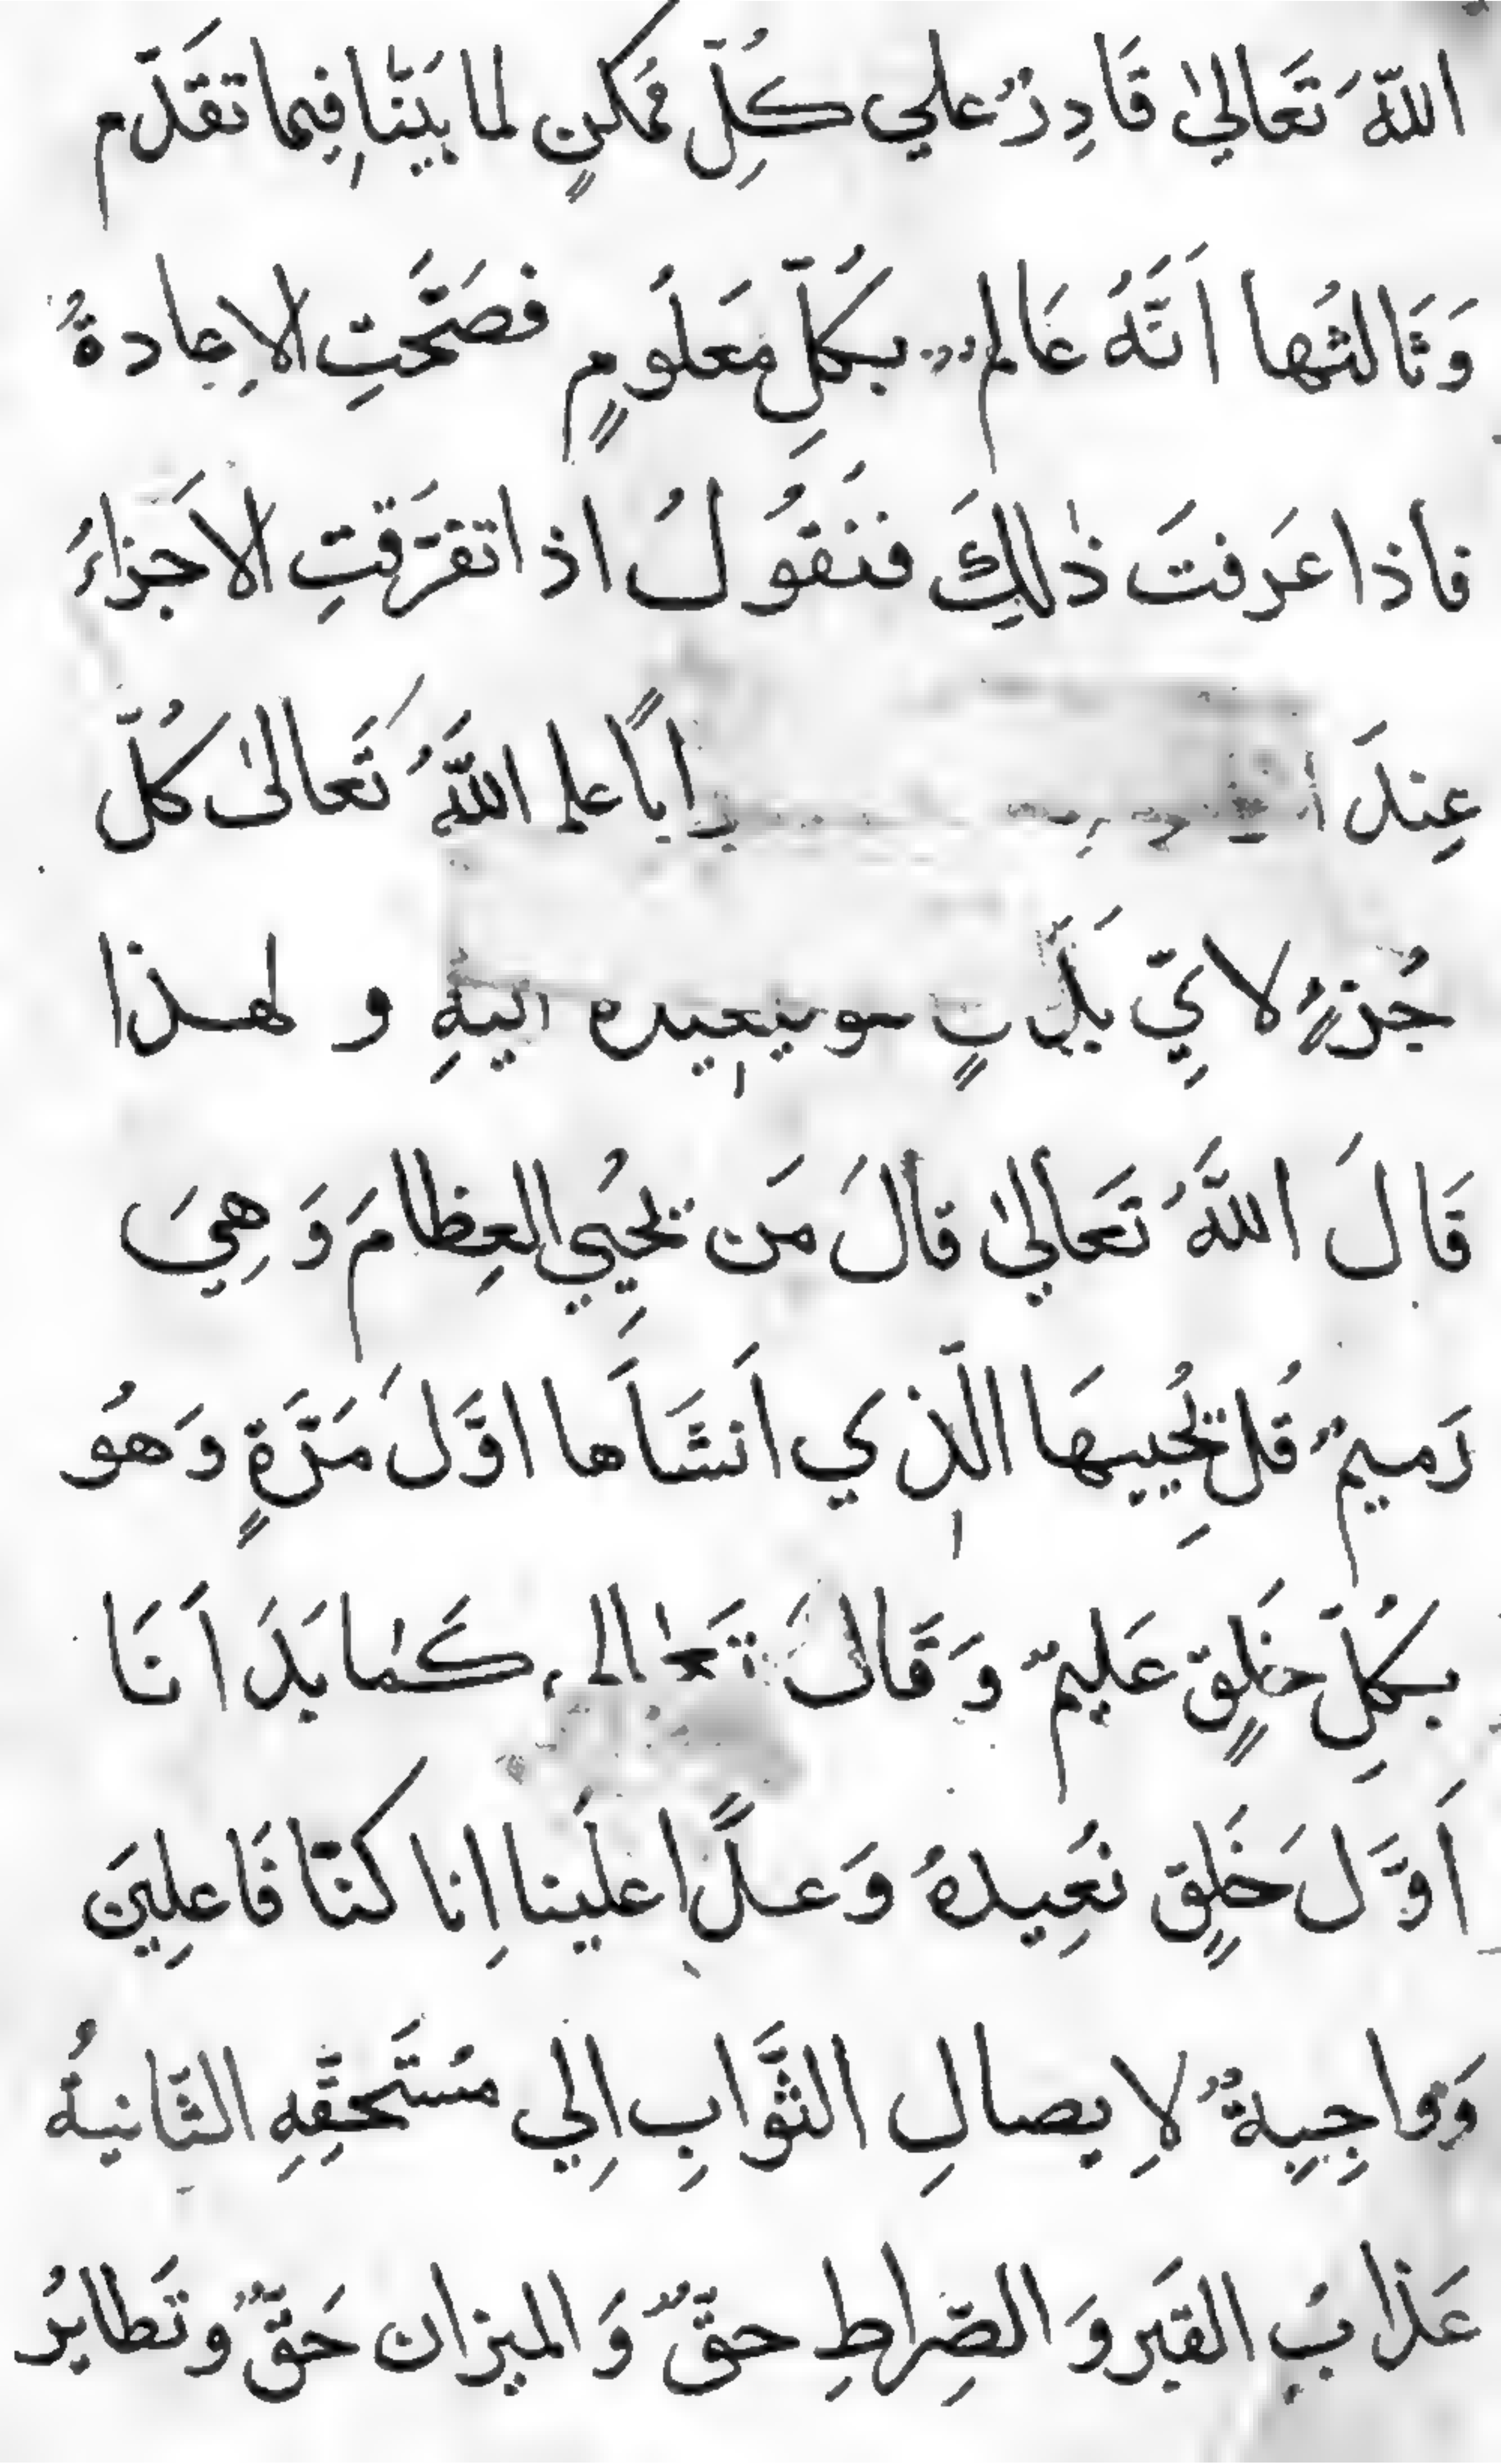 اللهَ تَعَالىٰ قَادِرٌ علي كُلِّ مُمكنٍ لما بَيَّنّا فِيما تقَدّم
وَثَالثُها اَنَّهُ عَالمٌ بكُلِّ مَعلَومٍ فصَحَّتِ الاِعادةُ
فاذا عَرَفتَ ذٰلِكَ فنَقوُلُ اذا تفَرَّقتِ الاَجزاءَ
عِندَ تراباً علم اللَّهُ تَعالىٰ كُلَّ
جُزءٍ لايِّ بَدَنٍ هو فيعِيده اليهِ و لهذا
قَالَ اللَّهُ تَعَالىٰ قالَ مَن يُحيِي العِظامَ وَهِيَ
رَميمٌ قُل يُحِييهَا الَّذِي اَنشَاَها اوَّلَ مَرَّةٍ وَهوُ
بكُلِّ خَلقٍ عَليمٌ وَقَالَ تَعالى كَما بَدَاَنَا
اَوَّلَ خَلقٍ نُعِيدهُ وَعداً علَينا اِنا كنّا فَاعلِينَ
وَواجِبةٌ لاِيصالِ الثَّوابِ اِلي مُستَحقِّهِ الثّانيةُ
عَذابُ القَبرِ وَ الصِّراطِ حقٌّ وَ الميزان حَقٌّ و تَطايرُ